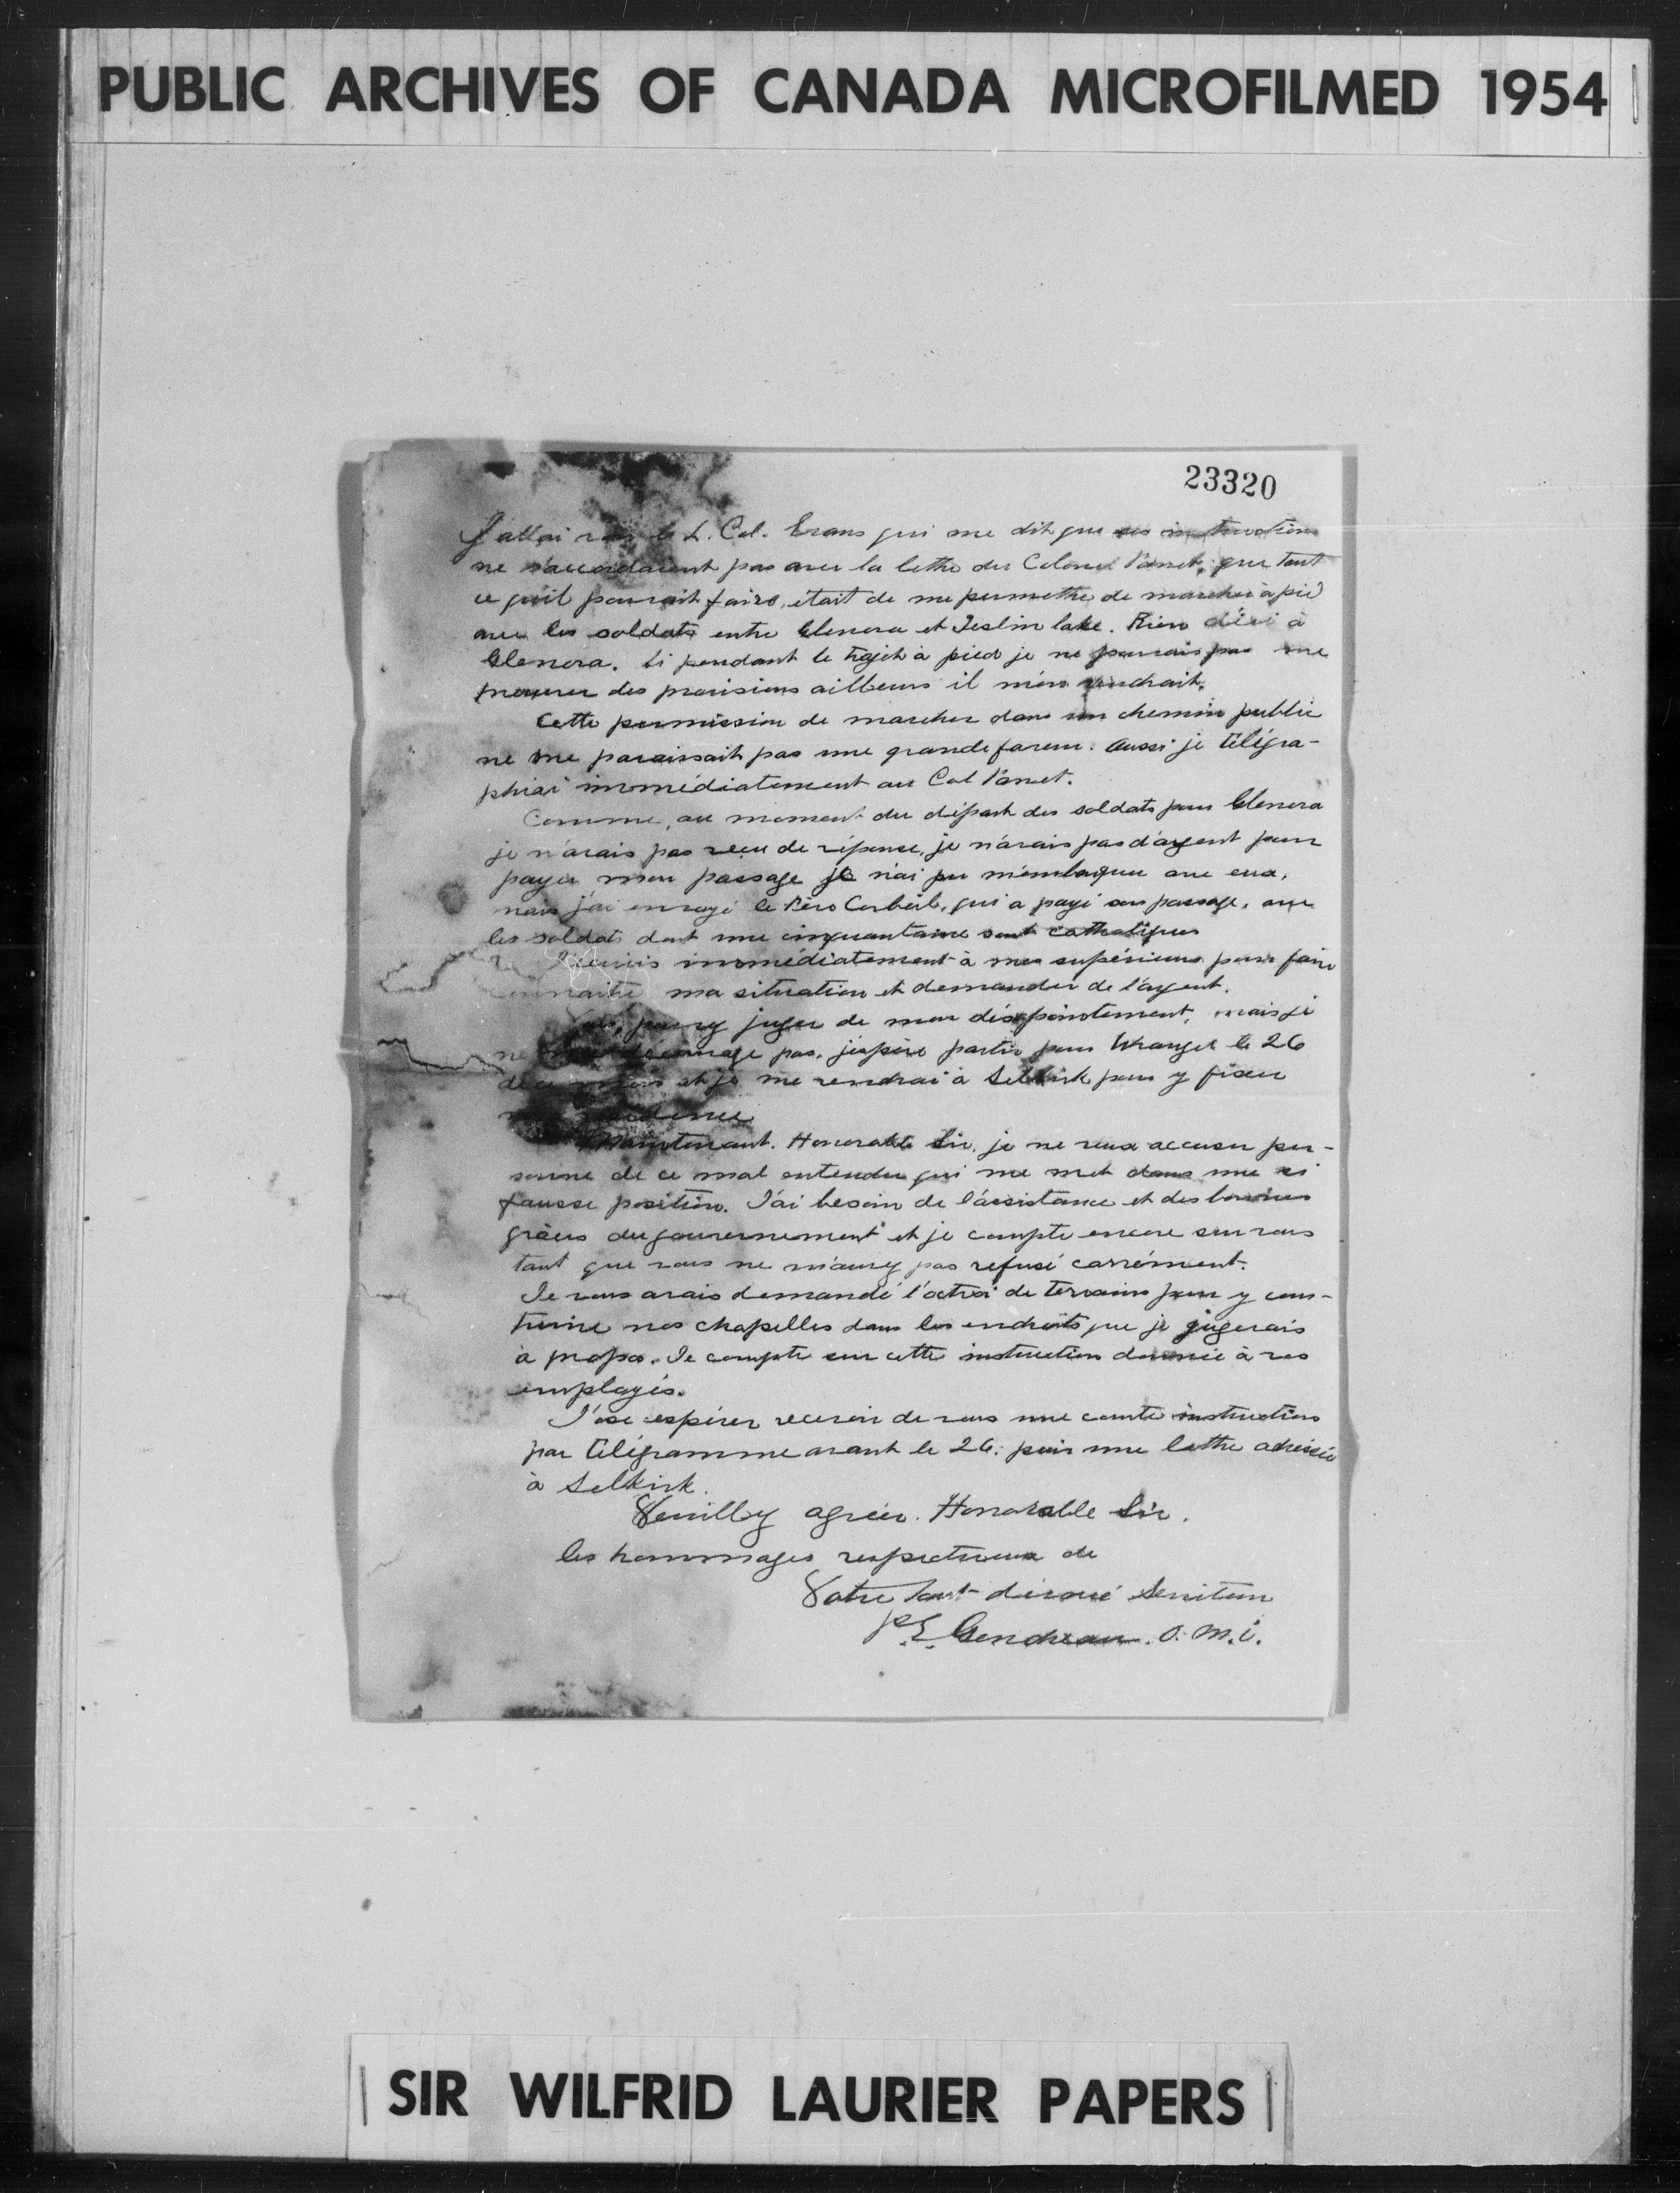 PUBLIC ARCHIVES OF CANADA MICROFILMED 1954
23320
J'allai voir le L. Col. Evans qui me dit que ses instructions
ne s'accordaient pas avec la lettre du Colonel Panet, que tout
ce qu'il pourrait faire, était de me permettre de marcher à pied
avec les soldats entre Glenora et Teslin lake. Rien d'ici à
Glenora. Si pendant le trajet à pied je ne pouvais pas me
procurer des provisions ailleurs il m'en vendrait.
Cette permission de marcher dans un chemin public
ne me paraissait pas une grande faveur. Aussi je télégra-
phiai immédiatement au Col Panet.
Comme, au moment du départ des soldats pour Glenora
je n'avais pas reçu de réponse, je n'avais pas d'argent pour
payer mon passage je n'ai pu m'embarquer avec eux,
mais j'ai envoyé le Père Corbeil, qui a payé son passage, avec
les soldats dont une cinquantaine sont catholiques
J'écrivis immédiatement à mes supérieurs pour faire
connaitre ma situation et demander de l'argent.
pouvez juger de mon désapointement, mais je
ne me décourage pas, j'espère partir pour Wrangel le 26
de ce mois et je me rendrai à Selkirk pour y fixer
ma résidence
Maintenant. Honorable Sir, je ne veux accuser per-
sonne de ce mal entendu qui me met dans une si
fausse position. J'ai besoin de l'assistance et des bonnes
grâces du gouvernement et je compte encore sur vous
tant que vous ne m'aurez pas refusé carrément.
Je vous avais demandé l'octroi de terrains pour y cons-
truire nos chapelles dans les endroits que je jugerais
à propos. Je compte sur cette instruction donnée à vos
employés.
J'ose espérer recevoir de vous une courte instruction
par télégramme avant le 26. puis une lettre adressée
à Selkirk.
Veuillez agréer. Honorable Sir.
les hommages respectueux de
Votre tout dévoué Serviteur
P.E. Gendreau. o.m.i.
SIR WILFRID LAURIER PAPERS